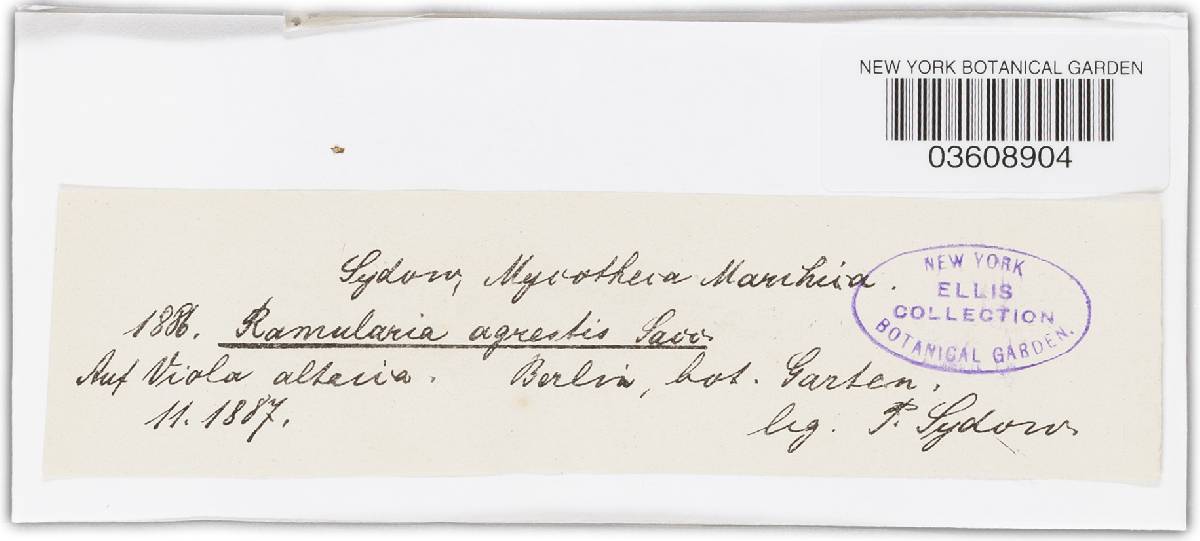 NEW YORK BOTANICAL GARDEN
03608904
Sydow, Mycotheca Marchica.
1886. Ramularia agrestis Sacc.
Auf Viola altaica. Berlin, bot. Garten.
11. 1887. leg. P. Sydow.
NEW YORK
ELLIS
COLLECTION
BOTANICAL GARDEN.